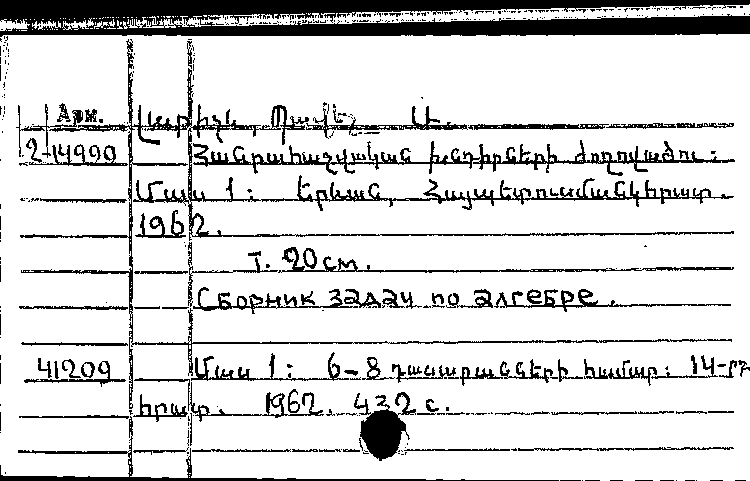 Арм. Լարիչև, Պավել Ա.
2-14990 Հանրահաշվական խնդիրների ժողովածու:
Մաս 1: Երևան, Հայպետուսմանկհրատ.
1962.
т. 20 см.
Сборник задач по алгебре.
41209 Մաս 1: 6-8 դասարանների համար: 14-րդ
հրատ. 1962. 432 с.